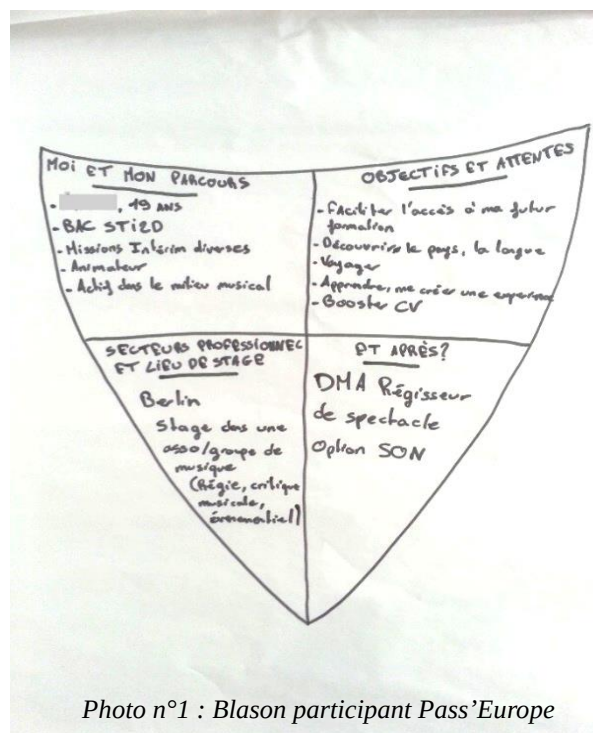 MOI ET MON PARCOURS
- , 19 ANS
- BAC STI2D
- Missions Intérim diverses
- Animateur
- Actif dans le milieu musical
OBJECTIFS ET ATTENTES
- Faciliter l'accès à ma futur
formation
- Découvrire le pays, la langue
- Voyager
- Apprendre, me créer une experience
- Booster CV
SECTEURS PROFESSIONNEL
ET LIEU DE STAGE
Berlin
Stage dans une
asso/groupe de
musique
(Régie, critique
musicale,
évenementiel)
ET APRÈS?
DMA Régisseur
de spectacle
Option SON
Photo n°1 : Blason participant Pass'Europe